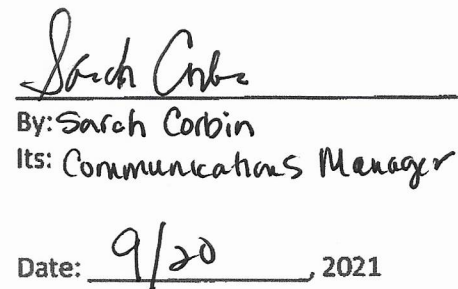 Sarah Corbin
By: Sarah Corbin
Its: Communications Manager
Date: 9/20, 2021